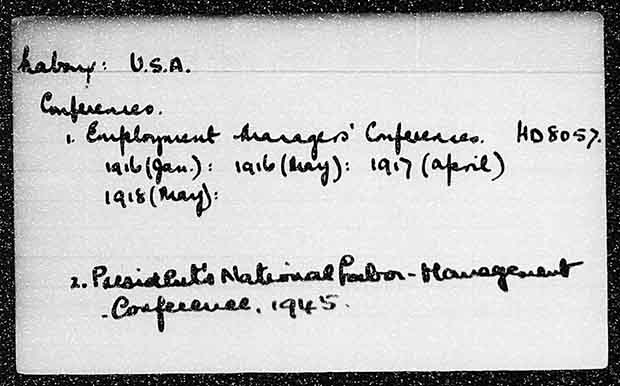 Labour: U.S.A.
Conferences.
1. Employment Managers' Conferences. HD8057.
1916 (Jan.): 1916 (May): 1917 (April)
1918 (May):
2. President's National Labor-Management
Conference, 1945.